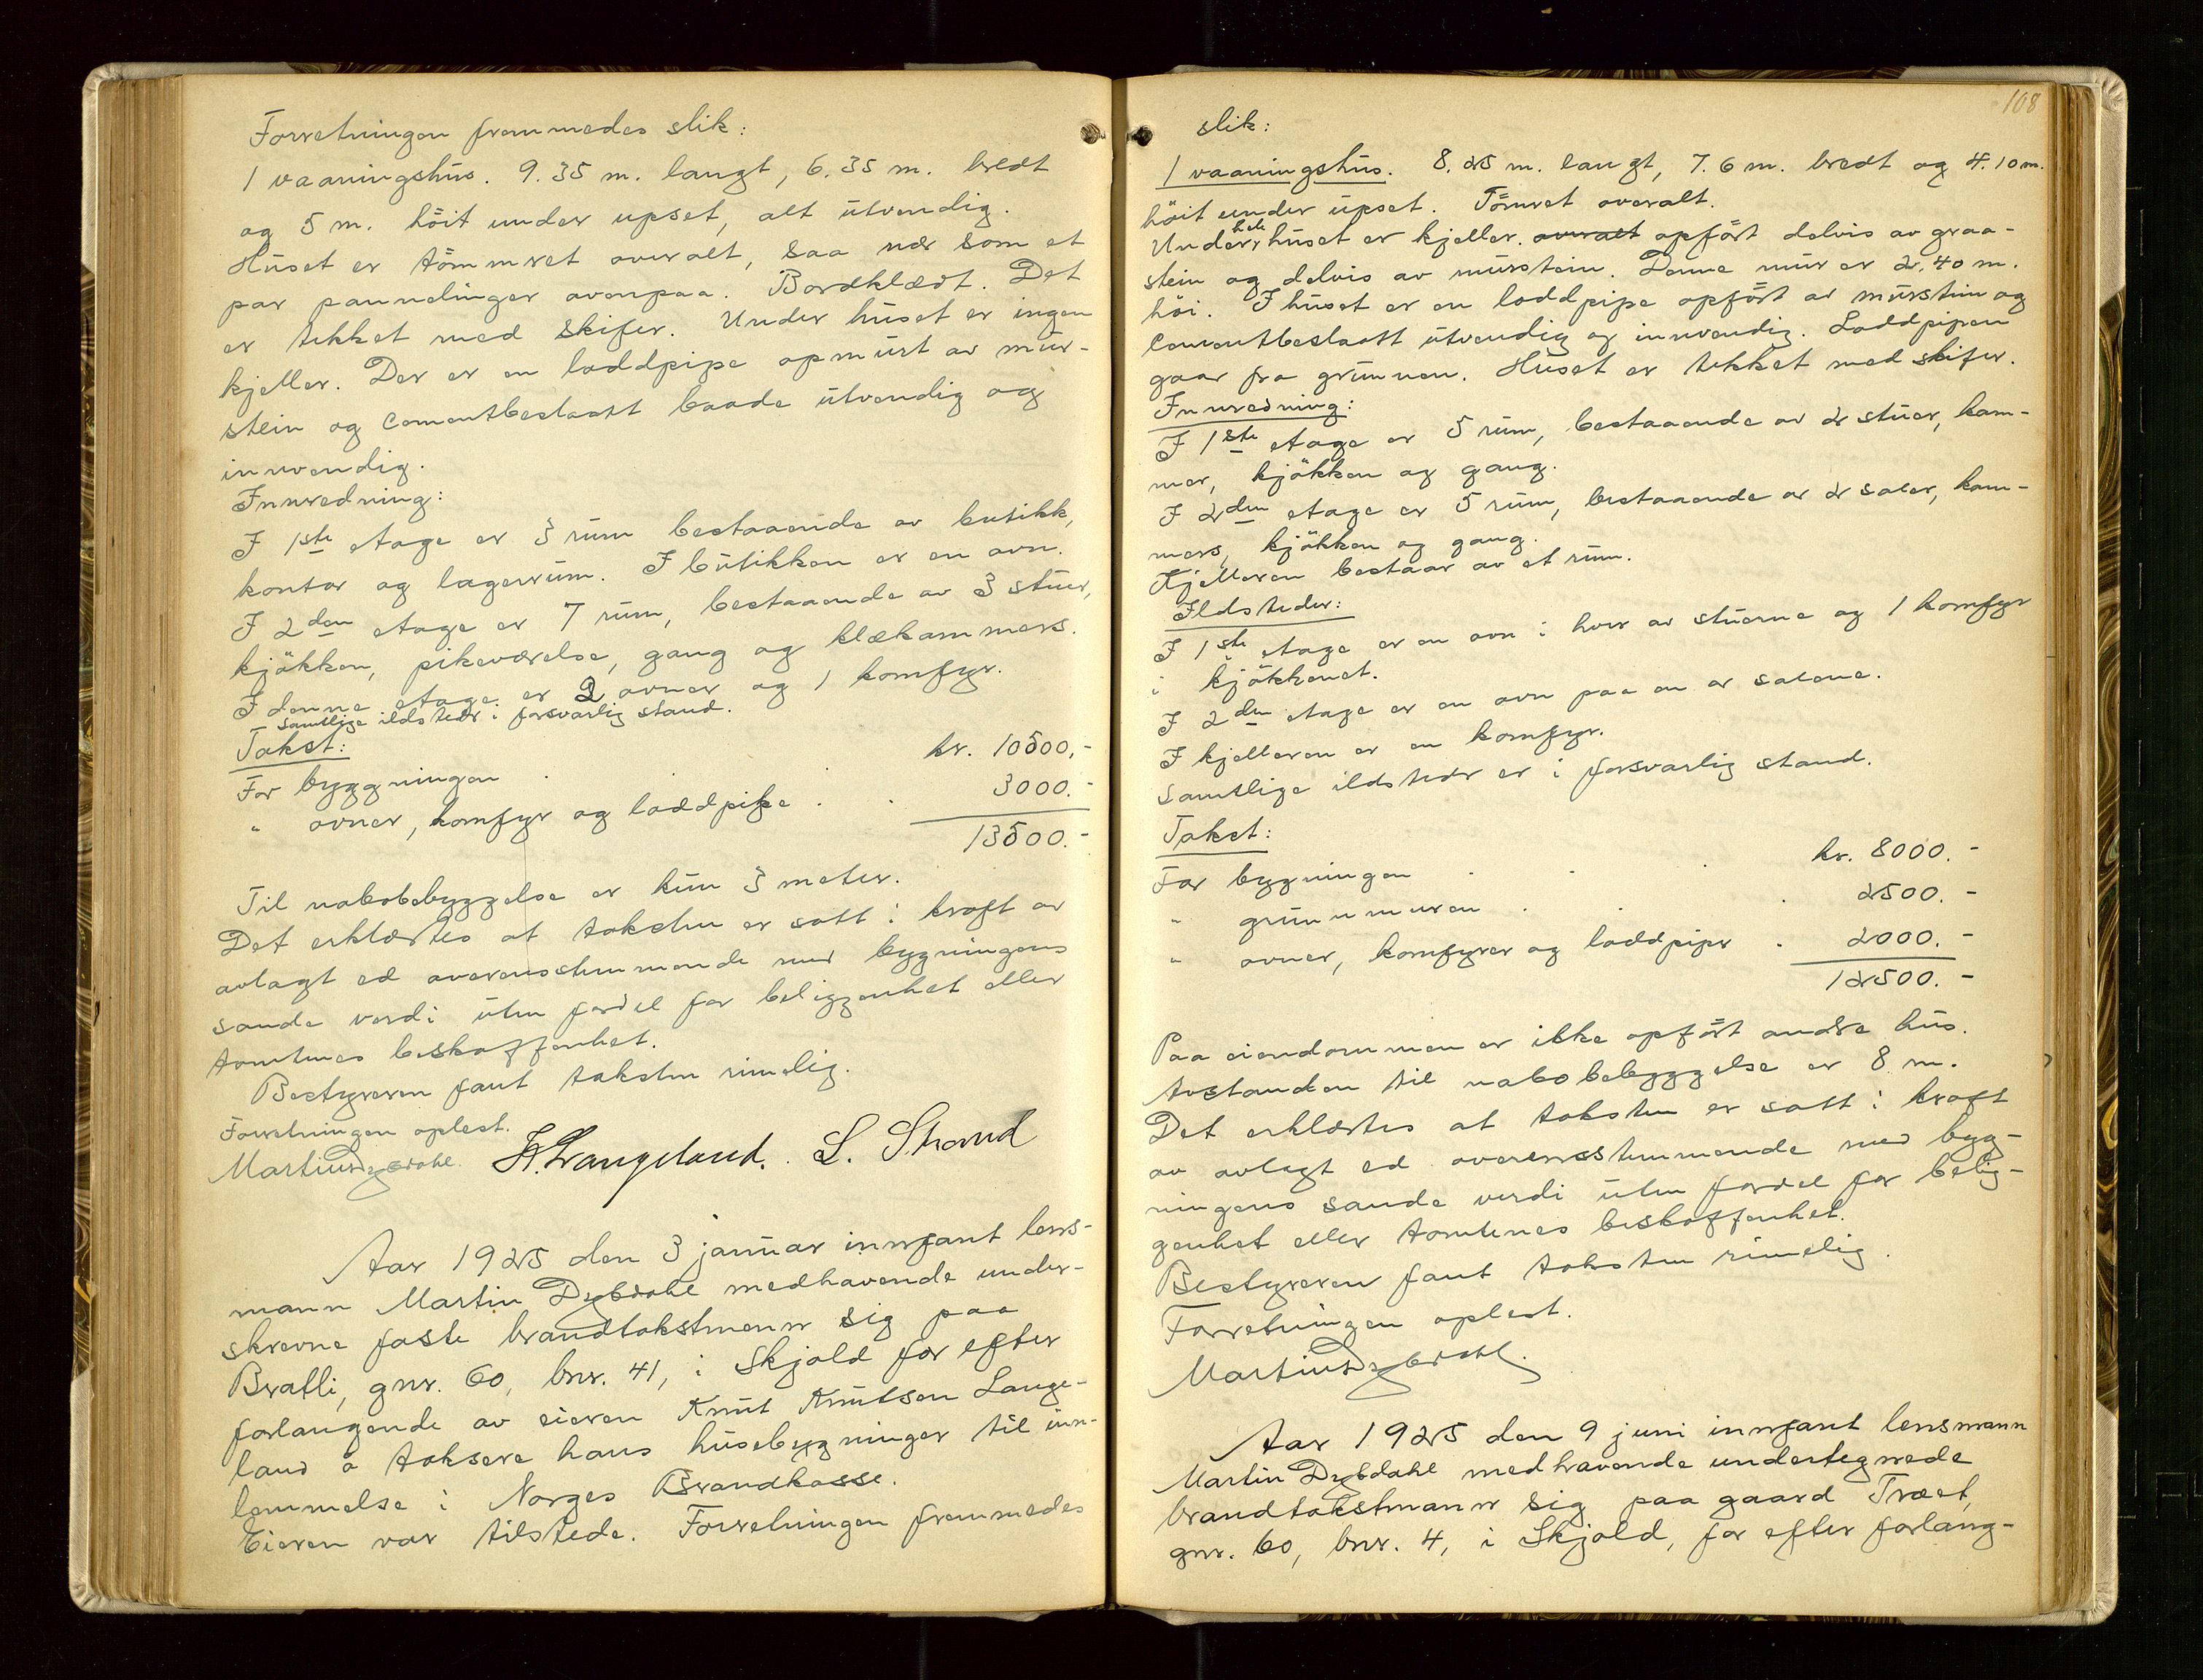 Forretningen fremmedes slik:
1 vaaningshus. 9.35 m. langt, 6.35 m. bredt
og 5 m. höit under upset, alt utvendig.
Huset er tömmret overalt, saa nær som et
par pannelinger ovenpaa. Bordklædt. Det
er tekket med skifer. Under huset er ingen
kjeller. Der er en loddpipe opmurt av mur-
stein og cementbeslaatt baade utvendig og
innvendig.
Innredning:
I 1ste etage er 3 rum bestaaende av butikk,
kontor og lagerrum. I butikken er en ovn.
I 2den etage er 7 rum, bestaaende av 3 stuer,
kjökken, pikeværelse, gang og klækammers.
I denne etage er 2 ovner og 1 komfyr.
Samtlige ildsteder i forsvarlig stand.
Takst:
For byggningen . kr. 10500,-
" ovner, komfyr og loddpipe . . 3000.-
13500.-
Til nabobebyggelse er kun 3 meter.
Det erklærtes at taksten er satt i kraft av
avlagt ed overensstemmende med bygningens
sande verdi uten fordel for beliggenhet eller
tomtenes beskaffenhet.
Bestyreren fant taksten rimelig.
Forretningen oplest.
Martin Dybdahl. K. Vangeland. L. Strand
Aar 1925 den 3 januar innfant lens-
mann Martin Dybdahl medhavende under-
skrevne faste brandtakstmenn sig paa
Bratli, gnr. 60, bnr. 41, i Skjold for efter
forlangende av eieren Knut Knutsen Lange-
land å taksere hans husebygninger til inn-
lemmelse i Norges Brandkasse.
Eieren var tilstede. Forretningen fremmedes
108
slik:
1 vaaningshus. 8.25 m. langt, 7.6 m. bredt og 4.10 m.
höit under upset. Tömret overalt.
Under hele huset er kjeller. overalt opfört delvis av graa-
stein og delvis av murstein. Denne mur er 2.40 m.
höi. I huset er en loddpipe opfört av murstein og
cementbeslaatt utvendig og innvendig. Loddpipen
gaar fra grunnen. Huset er tekket med skifer.
Innredning:
I 1ste etage er 5 rum, bestaaende av 2 stuer, kam-
mer, kjökken og gang.
I 2den etage er 5 rum, bestaaende av 2 saler, kam-
mers, kjökken og gang.
Kjelleren bestaar av et rum.
Ildsteder:
I 1ste etage er en ovn i hver av stuerne og 1 komfyr
i kjökkenet.
I 2den etage er en ovn paa en av salene.
I kjelleren er en komfyr.
Samtlige ildsteder er i forsvarlig stand.
Takst:
For bygningen . . . kr. 8000.-
" grunnmuren . . . 2500.-
" ovner, komfyrer og loddpiper . 2000.-
12500.-
Paa eiendommen er ikke opfört andre hus.
Avstanden til nabobebyggelse er 8 m.
Det erklærtes at taksten er satt i kraft
av avlagt ed overensstemmende med byg-
ningens sande verdi uten fordel for belig-
genhet eller tomtenes beskaffenhet.
Bestyreren fant taksten rimelig.
Forretningen oplest.
Martin Dybdahl.
Aar 1925 den 9 juni innfant lensmann
Martin Dybdahl medhavende undertegnede
brandtakstmann sig paa gaard Træet,
gnr. 60, bnr. 4, i Skjold, for efter forlang-